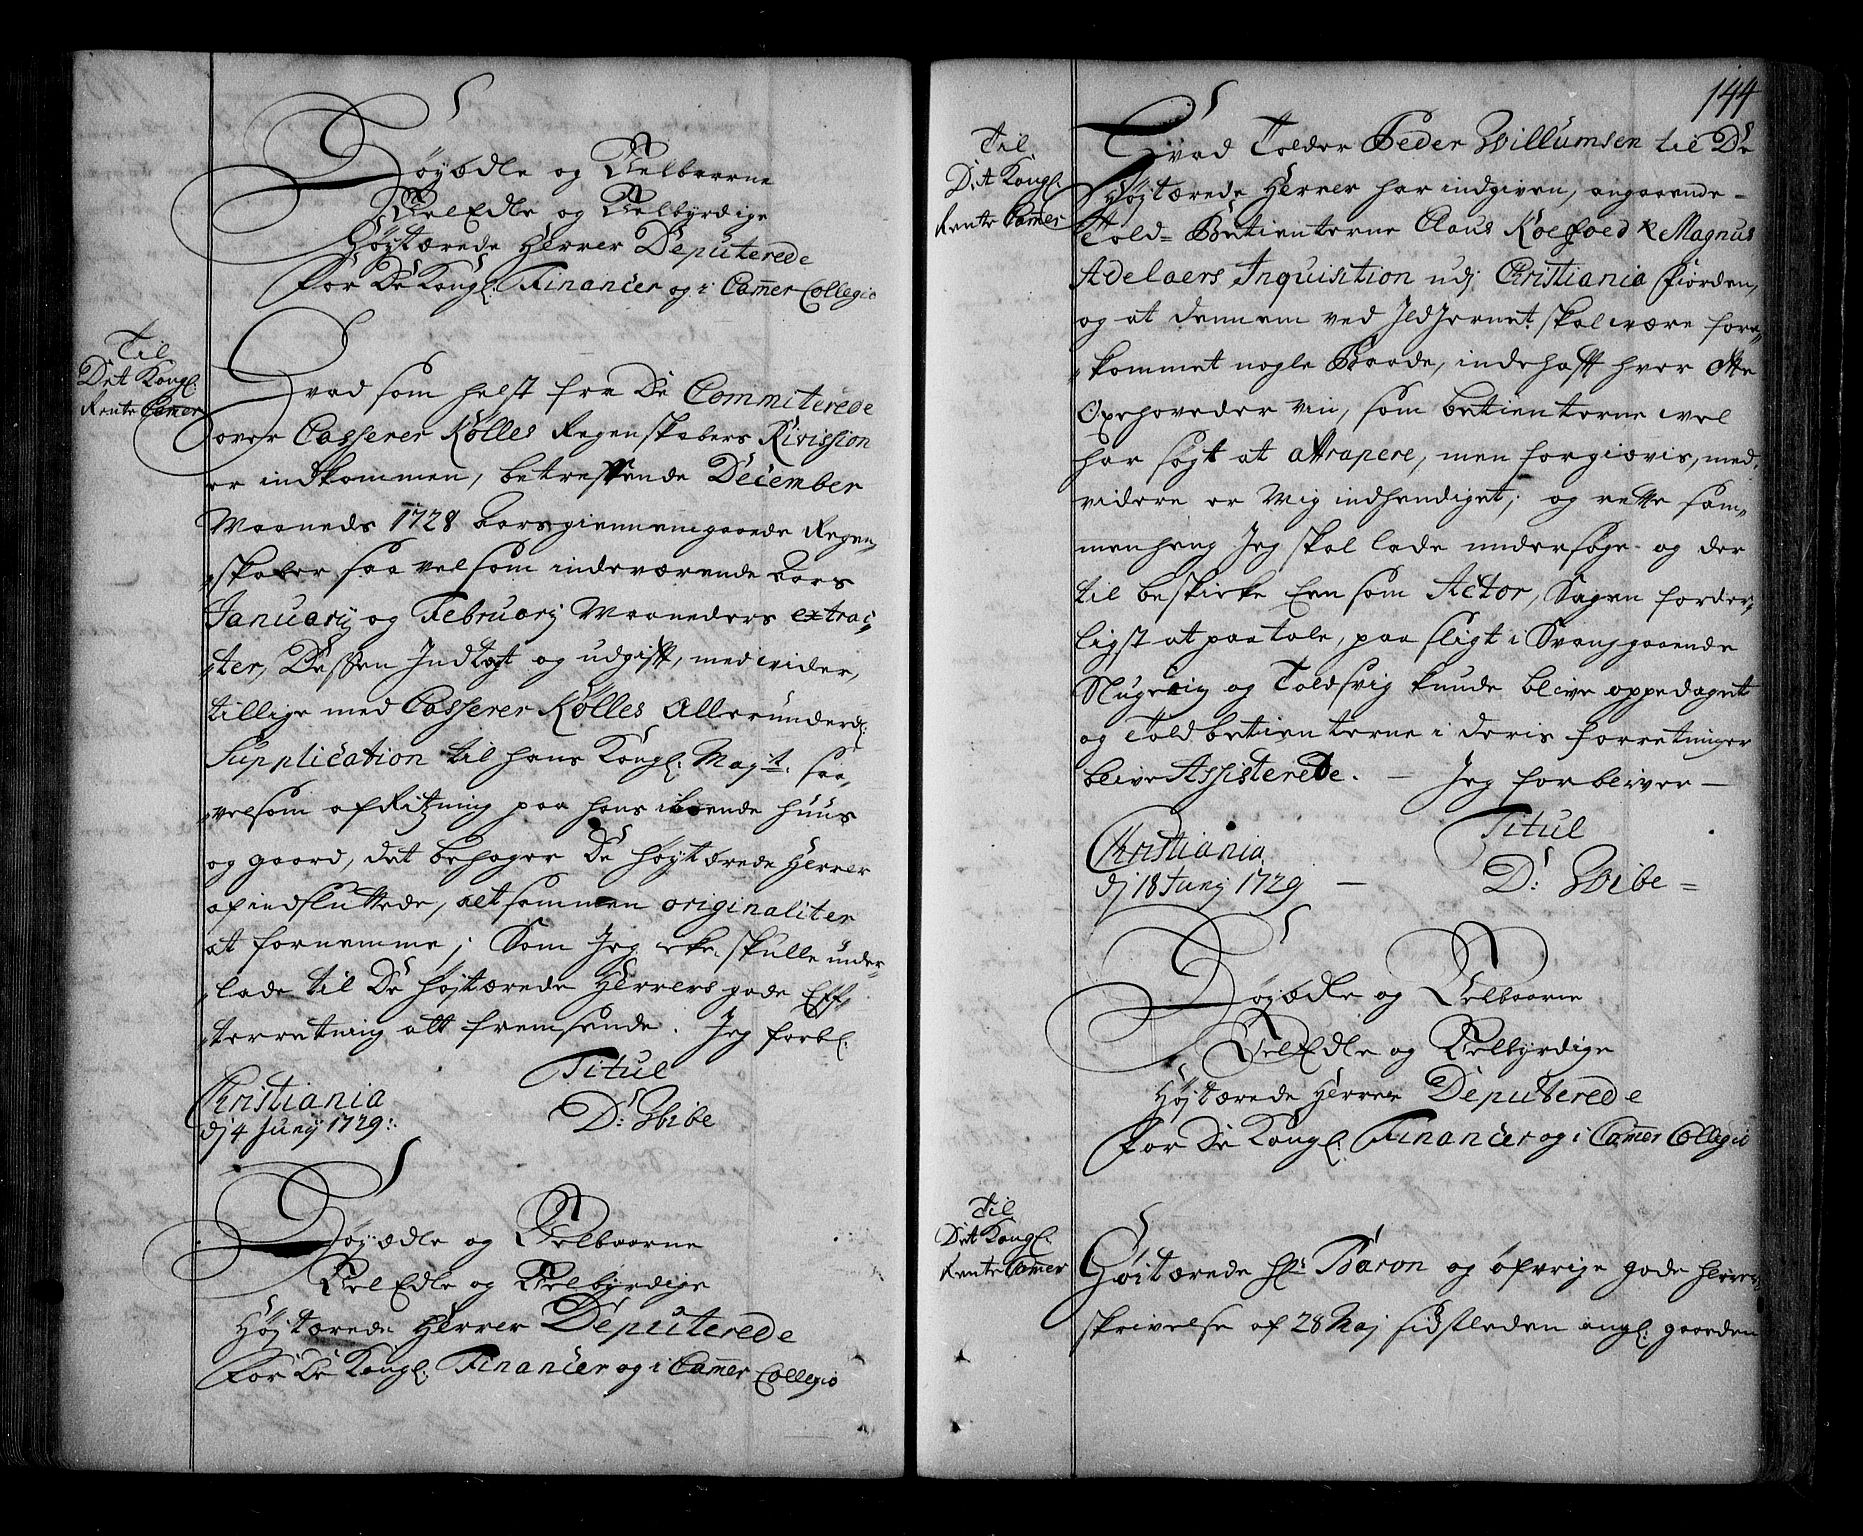 Høyædle og Velbaarne
VelEdle og Velbyrdige
Høgtærede Herrer Deputerede
for De Kongl: Financer og i Camer Collegio
Til
Det Kongl:
Rente Camer
Hvad som helst fra De Committerede
over Casserer Kølles Regenskabers Rivission
er indkommen, betreffende December
Maaneds 1728 Aars giennemgaaede Regen„
„skaber saa vel som indeværende Aars
Januarij og February Maaneders extrac„
„ter, Dessen Indtægt og udgift, med vider,
tillige med Casserer Kølles Allerunderd:
Supplication til hans Kongl: Mayt: saa„
„velsom afRitzning paa hans iboende huus
og gaard, det behager De høgtærede Herrer
af indsluttede, altsammen originaliter
at fornemme; Som Jeg icke skulle under„
„lade til De høgtærede Herrers gode Eff„
„terretning alt fremsende. Jeg forbl:
Titul
Christiania
dj 4 Junij 1729:
D: Wibe
Høyædle og Velbaarne
VelEdle og Velbyrdige
Højtærede Herrer Deputerede
for De Kongl: Financer og i Camer Collegio
144
Til
Det Kongl:
Rente Camer
Hvad Tolder Peder Willumsen til De
Højtærede Herrer har indgiven, angaaende
Told- Betienterne Claus Koefoed & Magnus
Adelaers Inquisition udj Christiania fiorden,
og at dennem ved Ildjernet skal være fore„
„kommet nogle Baade, indehaft hver otte
Oxehoveder viin, som betienterne vel
har søgt at attrapere, men forgiævis, med
videre er mig indhendiget; og rette sam„
menheng Jeg skal lade undersøge og der
til beskicke Een som Actor, Sagen forder„
ligst at paatale, paa sligt i Svang gaaende
Snigerie og Toldsvig kunde blive oppedaget
og Toldbetienterne i deris forretninger
blive Assisterede. — Jeg forbliver —
Titul
Christiania
dj 18 Junj 1729 —
D: Wibe =
Høyædle og Velbaarne
VelEdle og Velbyrdige
Højtærede Herrer Deputerede
for De Kongl: Financer og i Camer Collegio
Til
Det Kongl:
Rente Camer
Høitærede Hr: Baron og øfvrige gode Herrers
skrivelse af 28 Maj sidstleden angl: gaarden